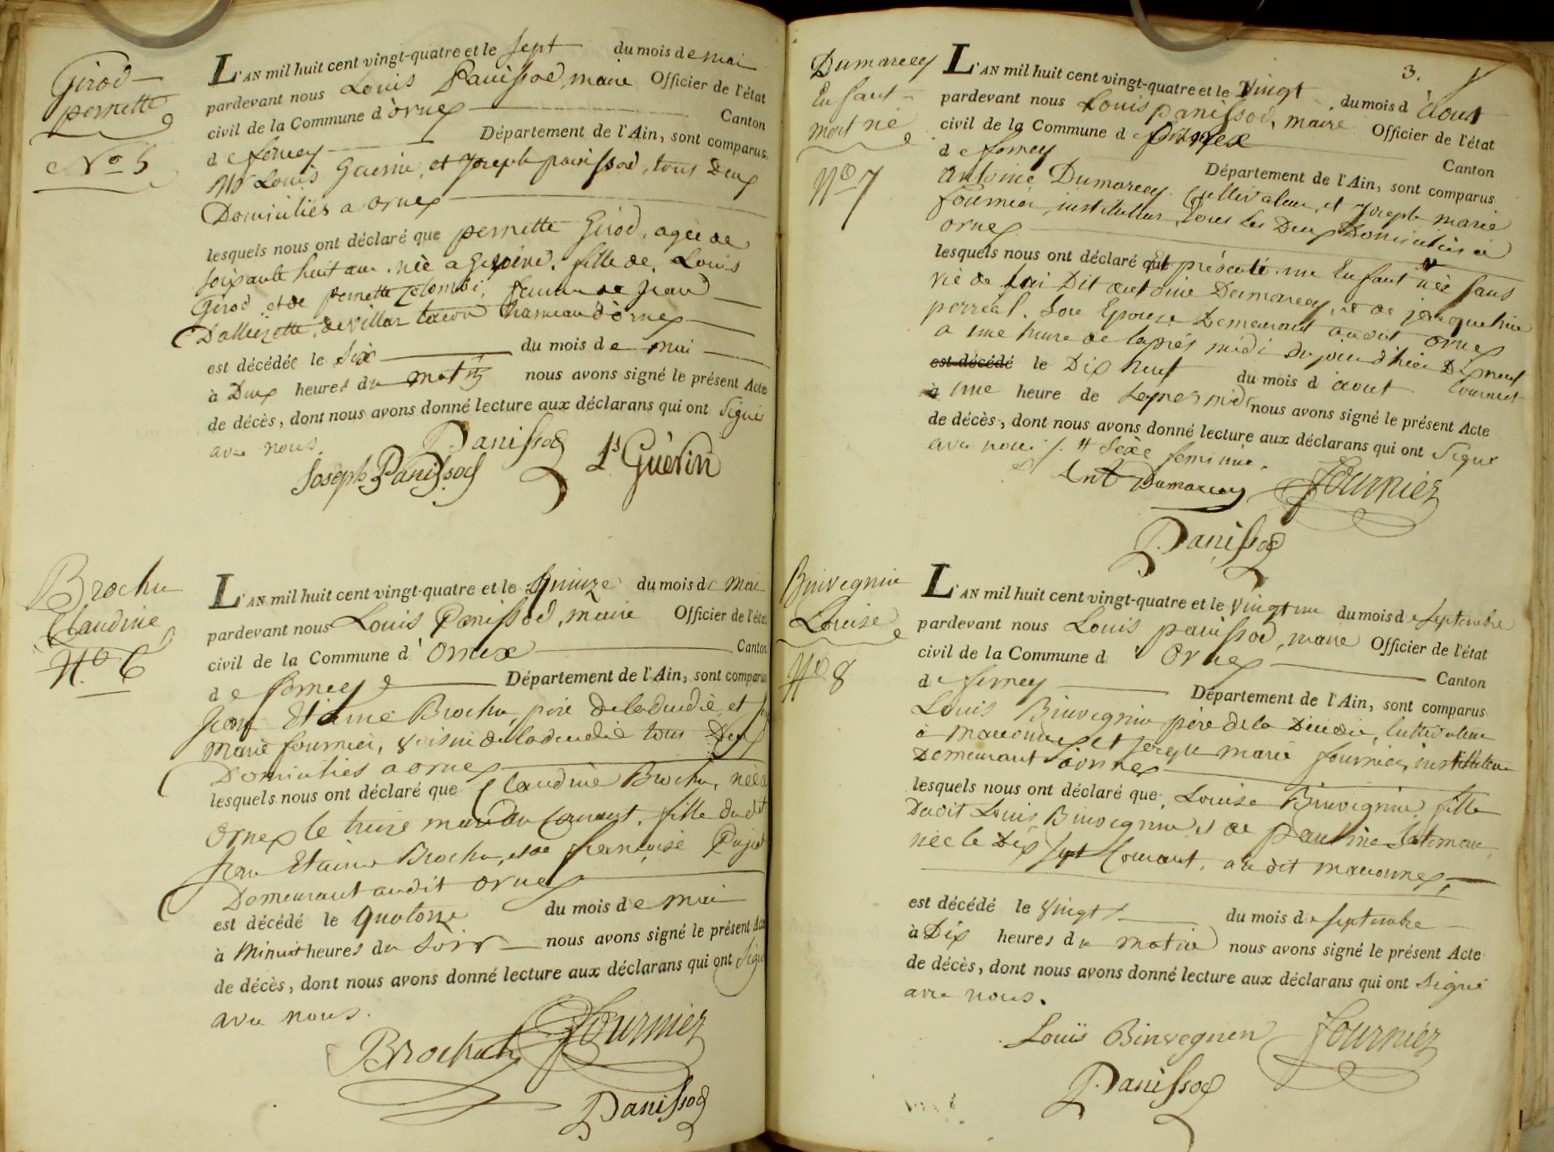 Girod
pernette
N° 5
L'AN mil huit cent vingt-quatre et le sept du mois de mai
pardevant nous Louis Panissod, maire Officier de l'état
civil de la Commune d'ornex Canton
de fernex Département de l'Ain, sont comparus
Mr Louis Guerin, et Joseph panissod, tous deux
Domiciliés a ornex
lesquels nous ont déclaré que pernette Girod, agée de
soixante huit ans, née a fille de Louis
Girod et de pernette femme de Jean
de villar tacon hameau d'ornex
est décédée le Six du mois de mai
à Deux heures du matin nous avons signé le présent Acte
de décès, dont nous avons donné lecture aux déclarans qui ont signés
avec nous.
Panissod
Joseph Panissod Ls Guérin
Brochu
Claudine
N° 6
L'AN mil huit cent vingt-quatre et le Quinze du mois de mai
pardevant nous Louis Panissod, maire Officier de l'état
civil de la Commune d'Ornex Canton
de fernex Département de l'Ain, sont comparus
Jean Etienne Brochu, père de la decedée, et
marie fournier, voisin de la decedée tous Deux
Domiciliés a ornex
lesquels nous ont déclaré que Claudine Brochu, née a
Ornex le treize mai du Courant, fille du dit
Jean Etienne Brochu, et de françoise
Demeurant au dit ornex
est décédé le quatorze du mois de mai
à Minuit heures du soir nous avons signé le présent Acte
de décès, dont nous avons donné lecture aux déclarans qui ont Signé
avec nous.
Fournier
Panissod
3.
Dumarcey
Enfant
mort né
N° 7
L'AN mil huit cent vingt-quatre et le Vingt du mois d'aout
pardevant nous Louis panissod, maire Officier de l'état
civil de la Commune d'ornex Canton
de fernex Département de l'Ain, sont comparus
antoine Dumarcey Cultivateur, et Joseph marie
fournier, instituteur, tous les Deux Domiciliés à
ornex
lesquels nous ont déclaré et présenté un Enfant né sans
vie de lui Dit antoine Dumarcey, et de jacqueline
perréal, Son Epouse Demeurant au dit ornex
a une heure de laprés midi du jour d'hier Dixneuf
est décédé le Dix Neuf du mois d'aout Courant
à une heure de lapres midi nous avons signé le présent Acte
de décès, dont nous avons donné lecture aux déclarans qui ont Signé
avec nous. # Sexe feminin.
Ant Dumarcey Fournier
Panissod
Binvegnin
Louise
N° 8
L'AN mil huit cent vingt-quatre et le vingt un du mois de Septembre
pardevant nous Louis panissod, maire Officier de l'état
civil de la Commune d Ornex Canton
de fernex Département de l'Ain, sont comparus
Louis Binvegnin père de la Decedée, Cultivateur
à maconnex et Joseph marie fournier, instituteur
Demeurant à ornex
lesquels nous ont déclaré que, Louise Binvegnin, fille
Du dit Louis Binvegnin, et de pauline
née le Dix sept Courant, au dit maconnex,
est décédé le vingt du mois de septembre
à Dix heures du matin nous avons signé le présent Acte
de décès, dont nous avons donné lecture aux déclarans qui ont Signé
avec nous.
Louïs Binvegnen Fournier
Panissod